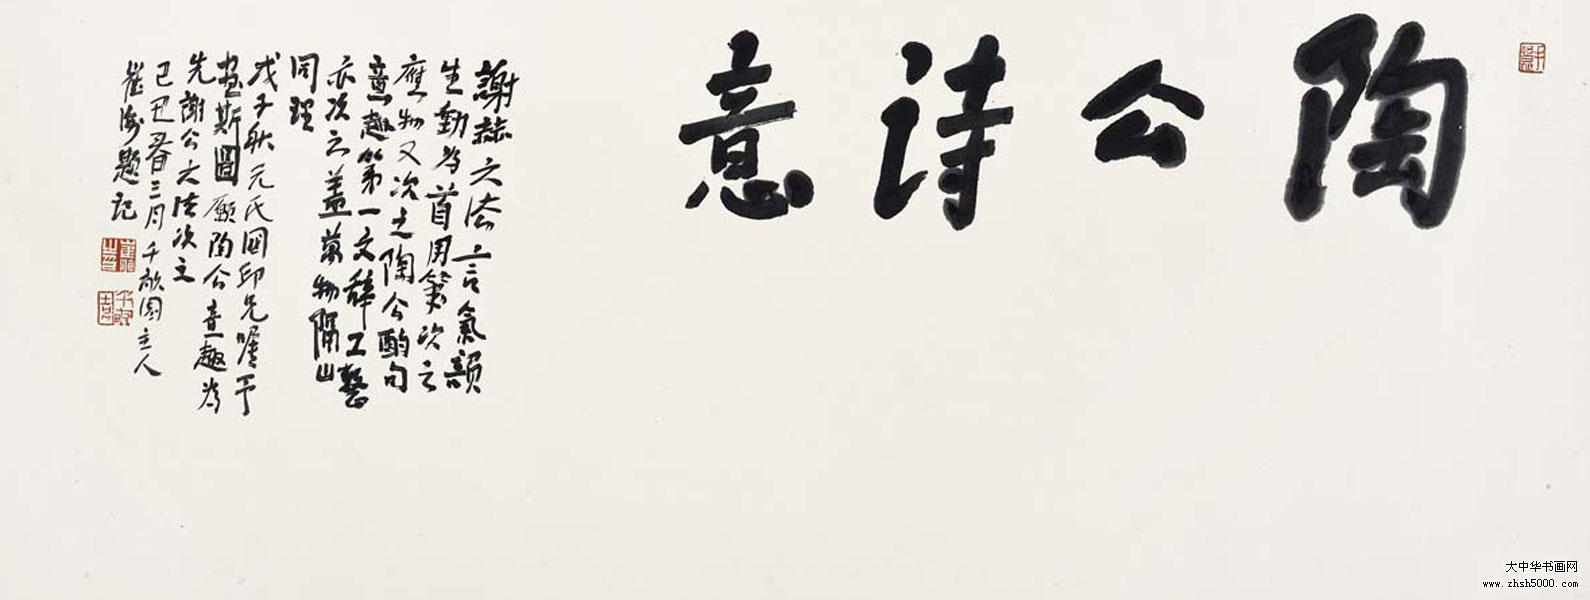 陶公诗意
謝赫六法言氣韻
生動为首用筆次之
應物又次之陶公酌句
意趣第一文辞工整
亦次之盖萬物隔山
同理
戊子秋元氏国印兄嘱予
畫斯圖願陶公意趣为
先謝公六法次之
己丑春三月千敵园主人
崔海題记
大中华书画网
www.zhsh5000.com